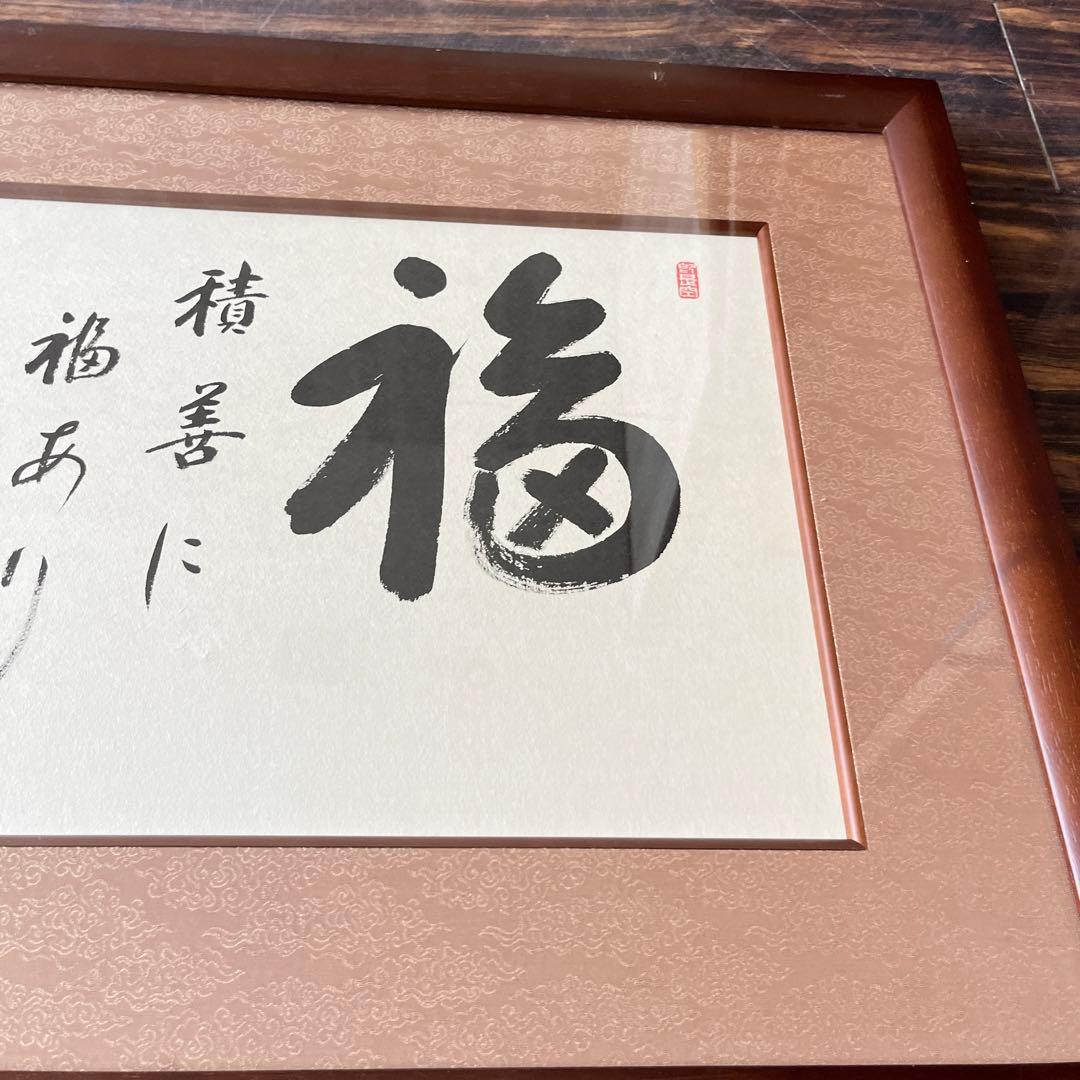 福
積善に
福あり